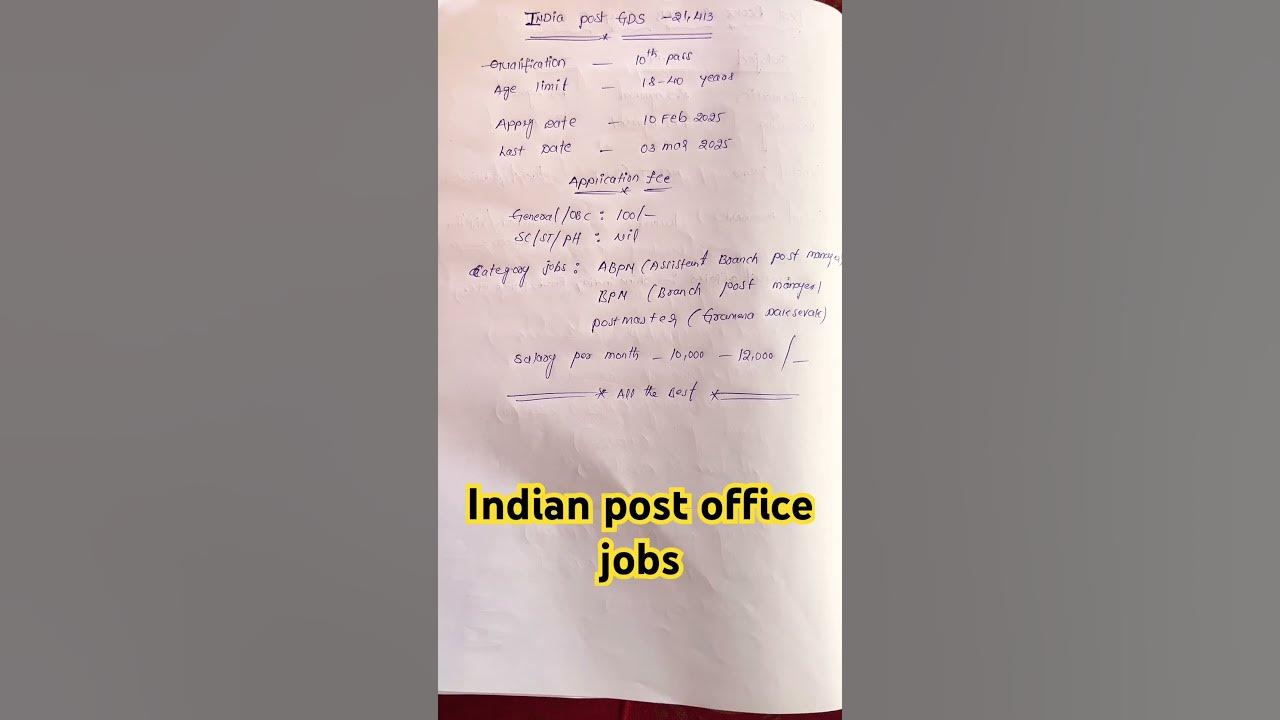 India post GDS - 21,413
Qualification - 10th pass
Age limit - 18-40 years
Apply Date - 10 Feb 2025
Last Date - 03 mar 2025
Application fee
General/OBC : 100/-
SC/ST/PH : Nil
Category jobs : ABPM (Assistent Branch post manager)
BPM (Branch post manager)
postmaster (Gramena Dak sevak)
Salary per month - 10,000 - 12,000/-
* All the Best *
Indian post office
jobs